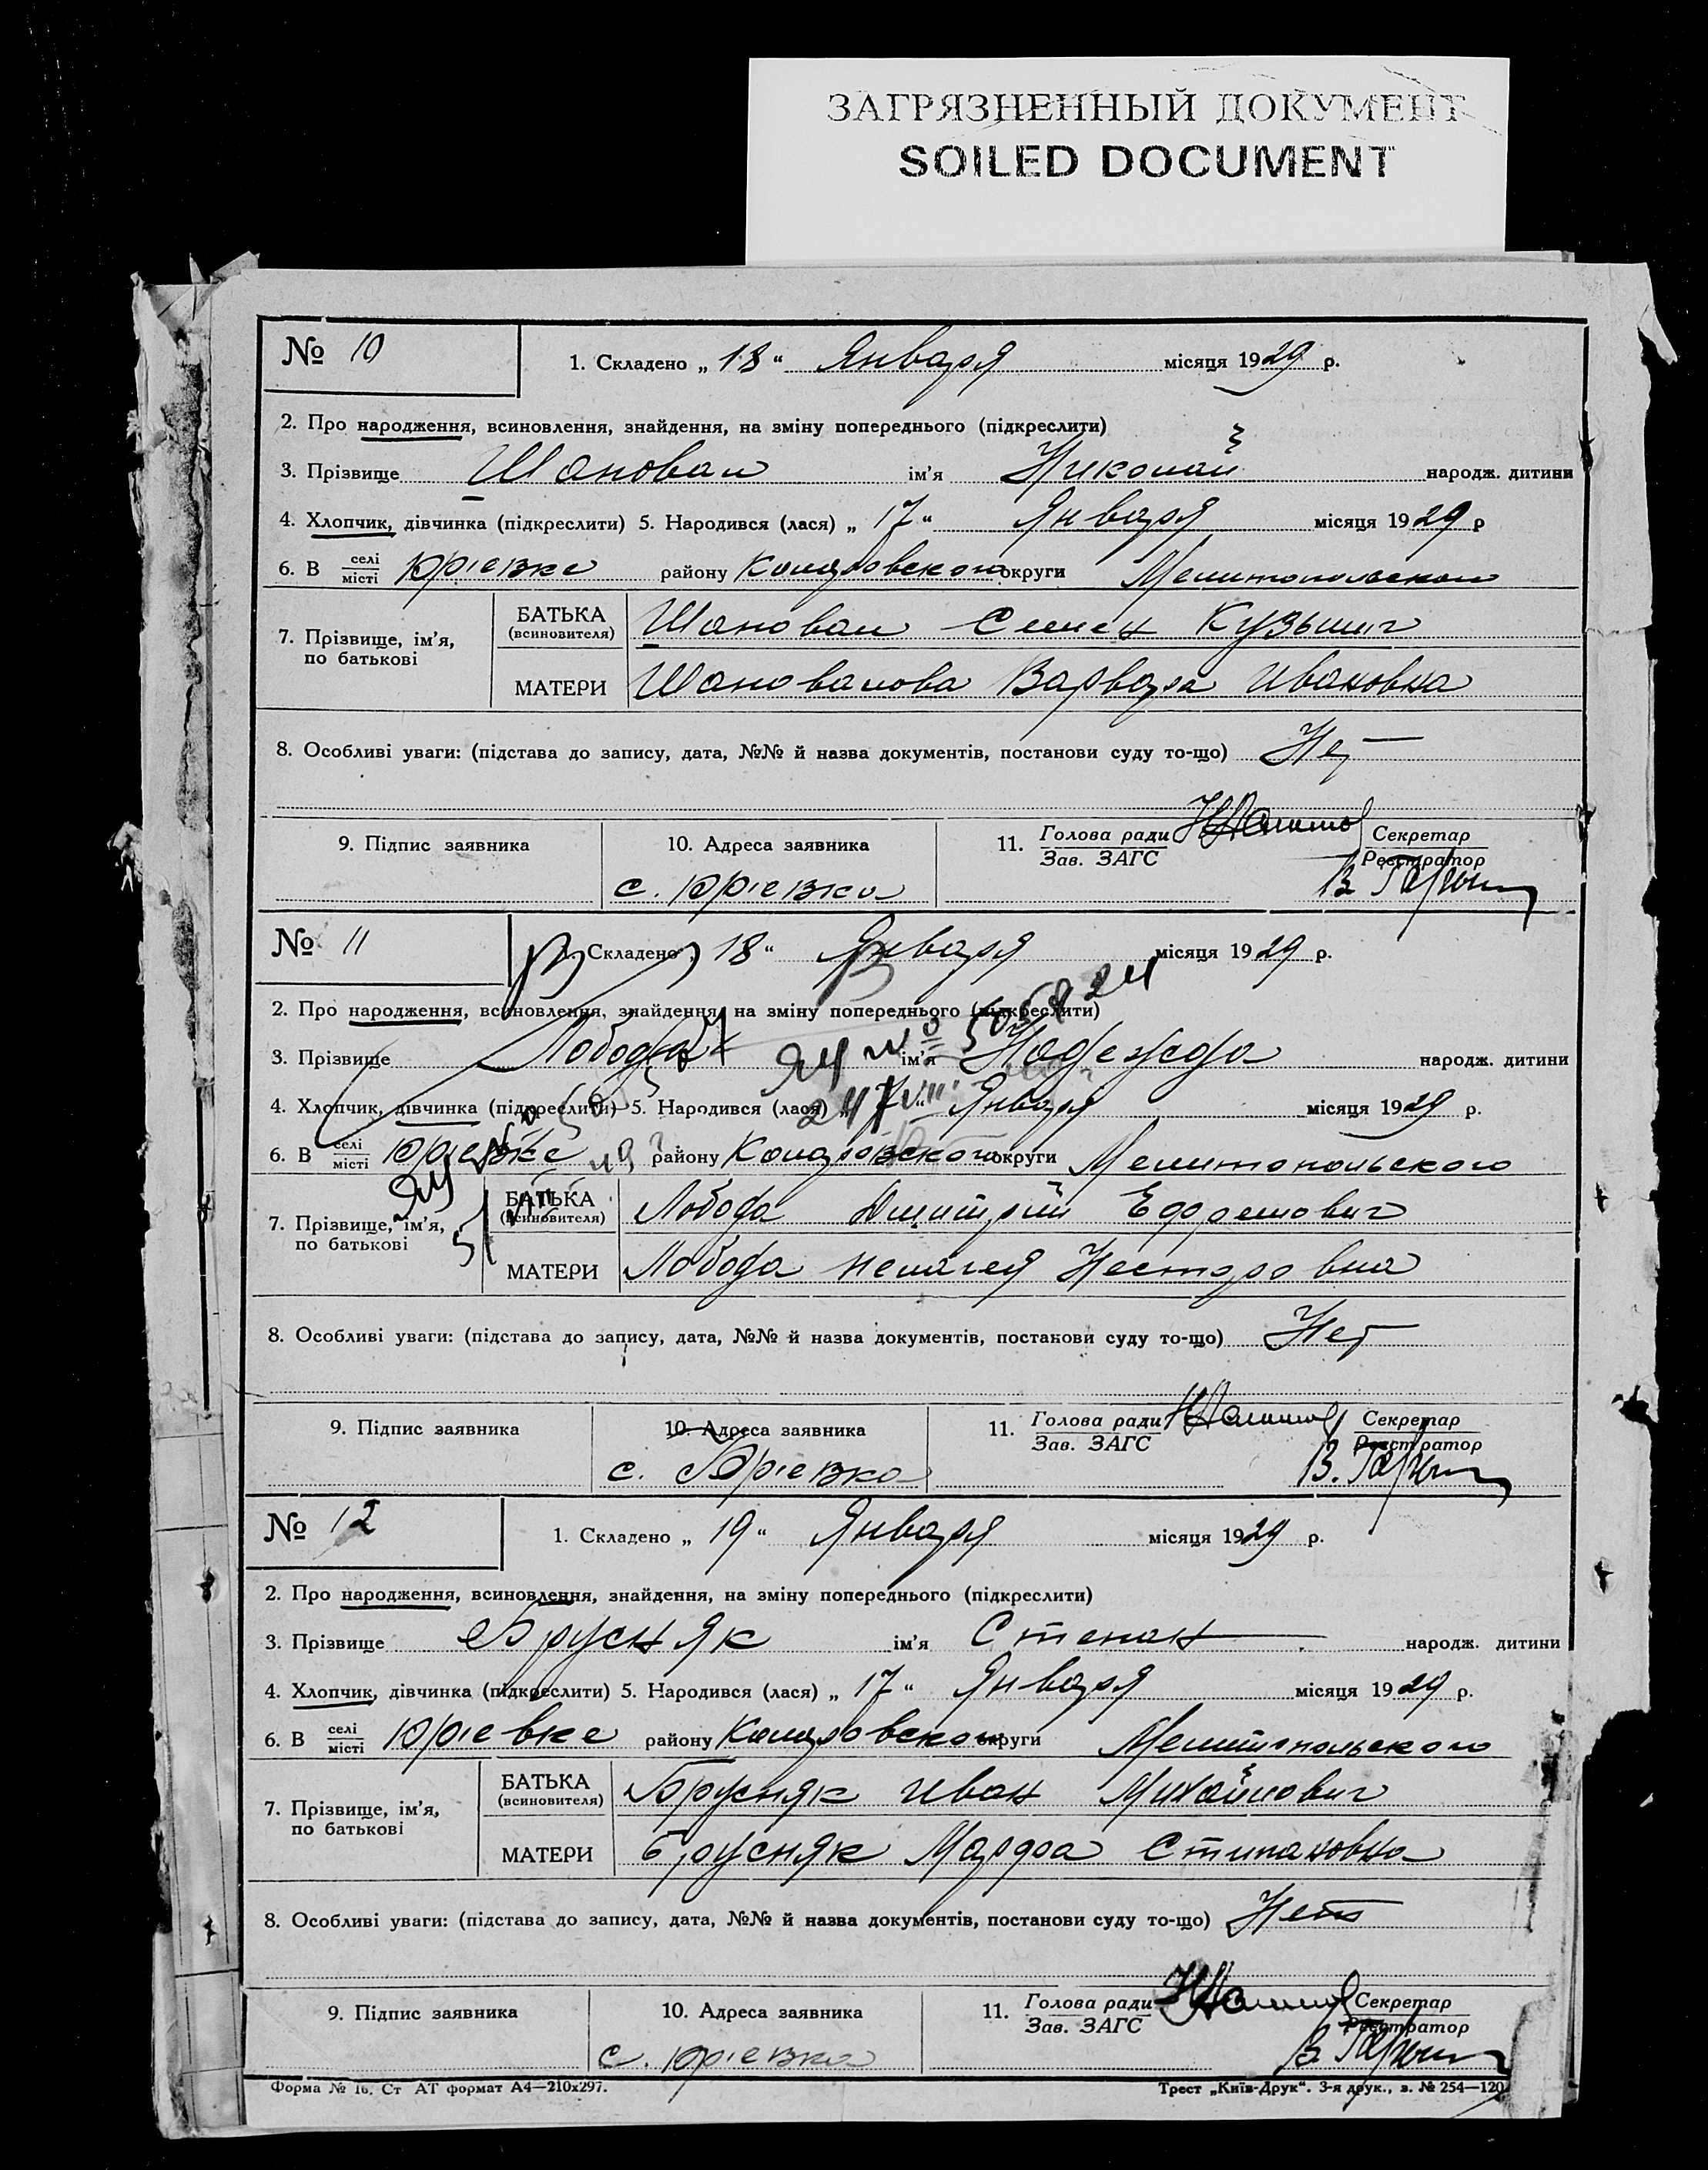 ЗАГРЯЗНЕННЫЙ ДОКУМЕНТ
SOILED DOCUMENT
№ 10
1. Складено „ 18 “ Января місяця 1929 р.
2. Про народження, всиновлення, знайдення, на зміну попереднього (підкреслити)
3. Прізвище Шаповал ім'я Николай народж. дитини
4. Хлопчик, дівчинка (підкреслити) 5. Народився (лася) „ 17 “ Января місяця 1929 р
6. В селі місті Юрíевке району Комаровского округи Мелитопольском
7. Прізвище, ім'я, по батькові
БАТЬКА (всиновителя) Шаповал Семен Кузьмич
МАТЕРИ Шаповалова Варвара Ивановна
8. Особливі уваги: (підстава до запису, дата, №№ й назва документів, постанови суду то-що) Нет
9. Підпис заявника 10. Адреса заявника 11. Голова ради Зав. ЗАГС Секретар Реєстратор
с. Юріевка
№ 11
Складено „ 18 “ Января місяця 1929 р.
2. Про народження, всиновлення, знайдення, на зміну попереднього (підкреслити)
3. Прізвище Лобода ім'я Надежда народж. дитини
4. Хлопчик, дівчинка (підкреслити) 5. Народився (лася) „ 17 “ Января місяця 1929 р.
6. В селі місті Юріевке району Комаровского округи Мелитопольского
7. Прізвище, ім'я, по батькові
БАТЬКА (всиновителя) Лобода Дмитрий Ефремович
МАТЕРИ Лобода Пелагея Несторовна
8. Особливі уваги: (підстава до запису, дата, №№ й назва документів, постанови суду то-що) Нет
9. Підпис заявника 10. Адреса заявника 11. Голова ради Зав. ЗАГС Секретар Реєстратор
с. Юріевка
№ 12
1. Складено „ 19 “ Января місяця 1929 р.
2. Про народження, всиновлення, знайдення, на зміну попереднього (підкреслити)
3. Прізвище Брусняк ім'я Степан народж. дитини
4. Хлопчик, дівчинка (підкреслити) 5. Народився (лася) „ 17 “ Января місяця 1929 р.
6. В селі місті Юріевке району Комаровского округи Мелитопольского
7. Прізвище, ім'я, по батькові
БАТЬКА (всиновителя) Брусняк Иван Михайлович
МАТЕРИ Брусняк Марфа Стипановна
8. Особливі уваги: (підстава до запису, дата, №№ й назва документів, постанови суду то-що) Нет
9. Підпис заявника 10. Адреса заявника 11. Голова ради Зав. ЗАГС Секретар Реєстратор
с. Юріевка
Форма № 16. Ст АТ формат А4—210x297. Трест „Київ-Друк“. 3-я друк., з. № 254—120